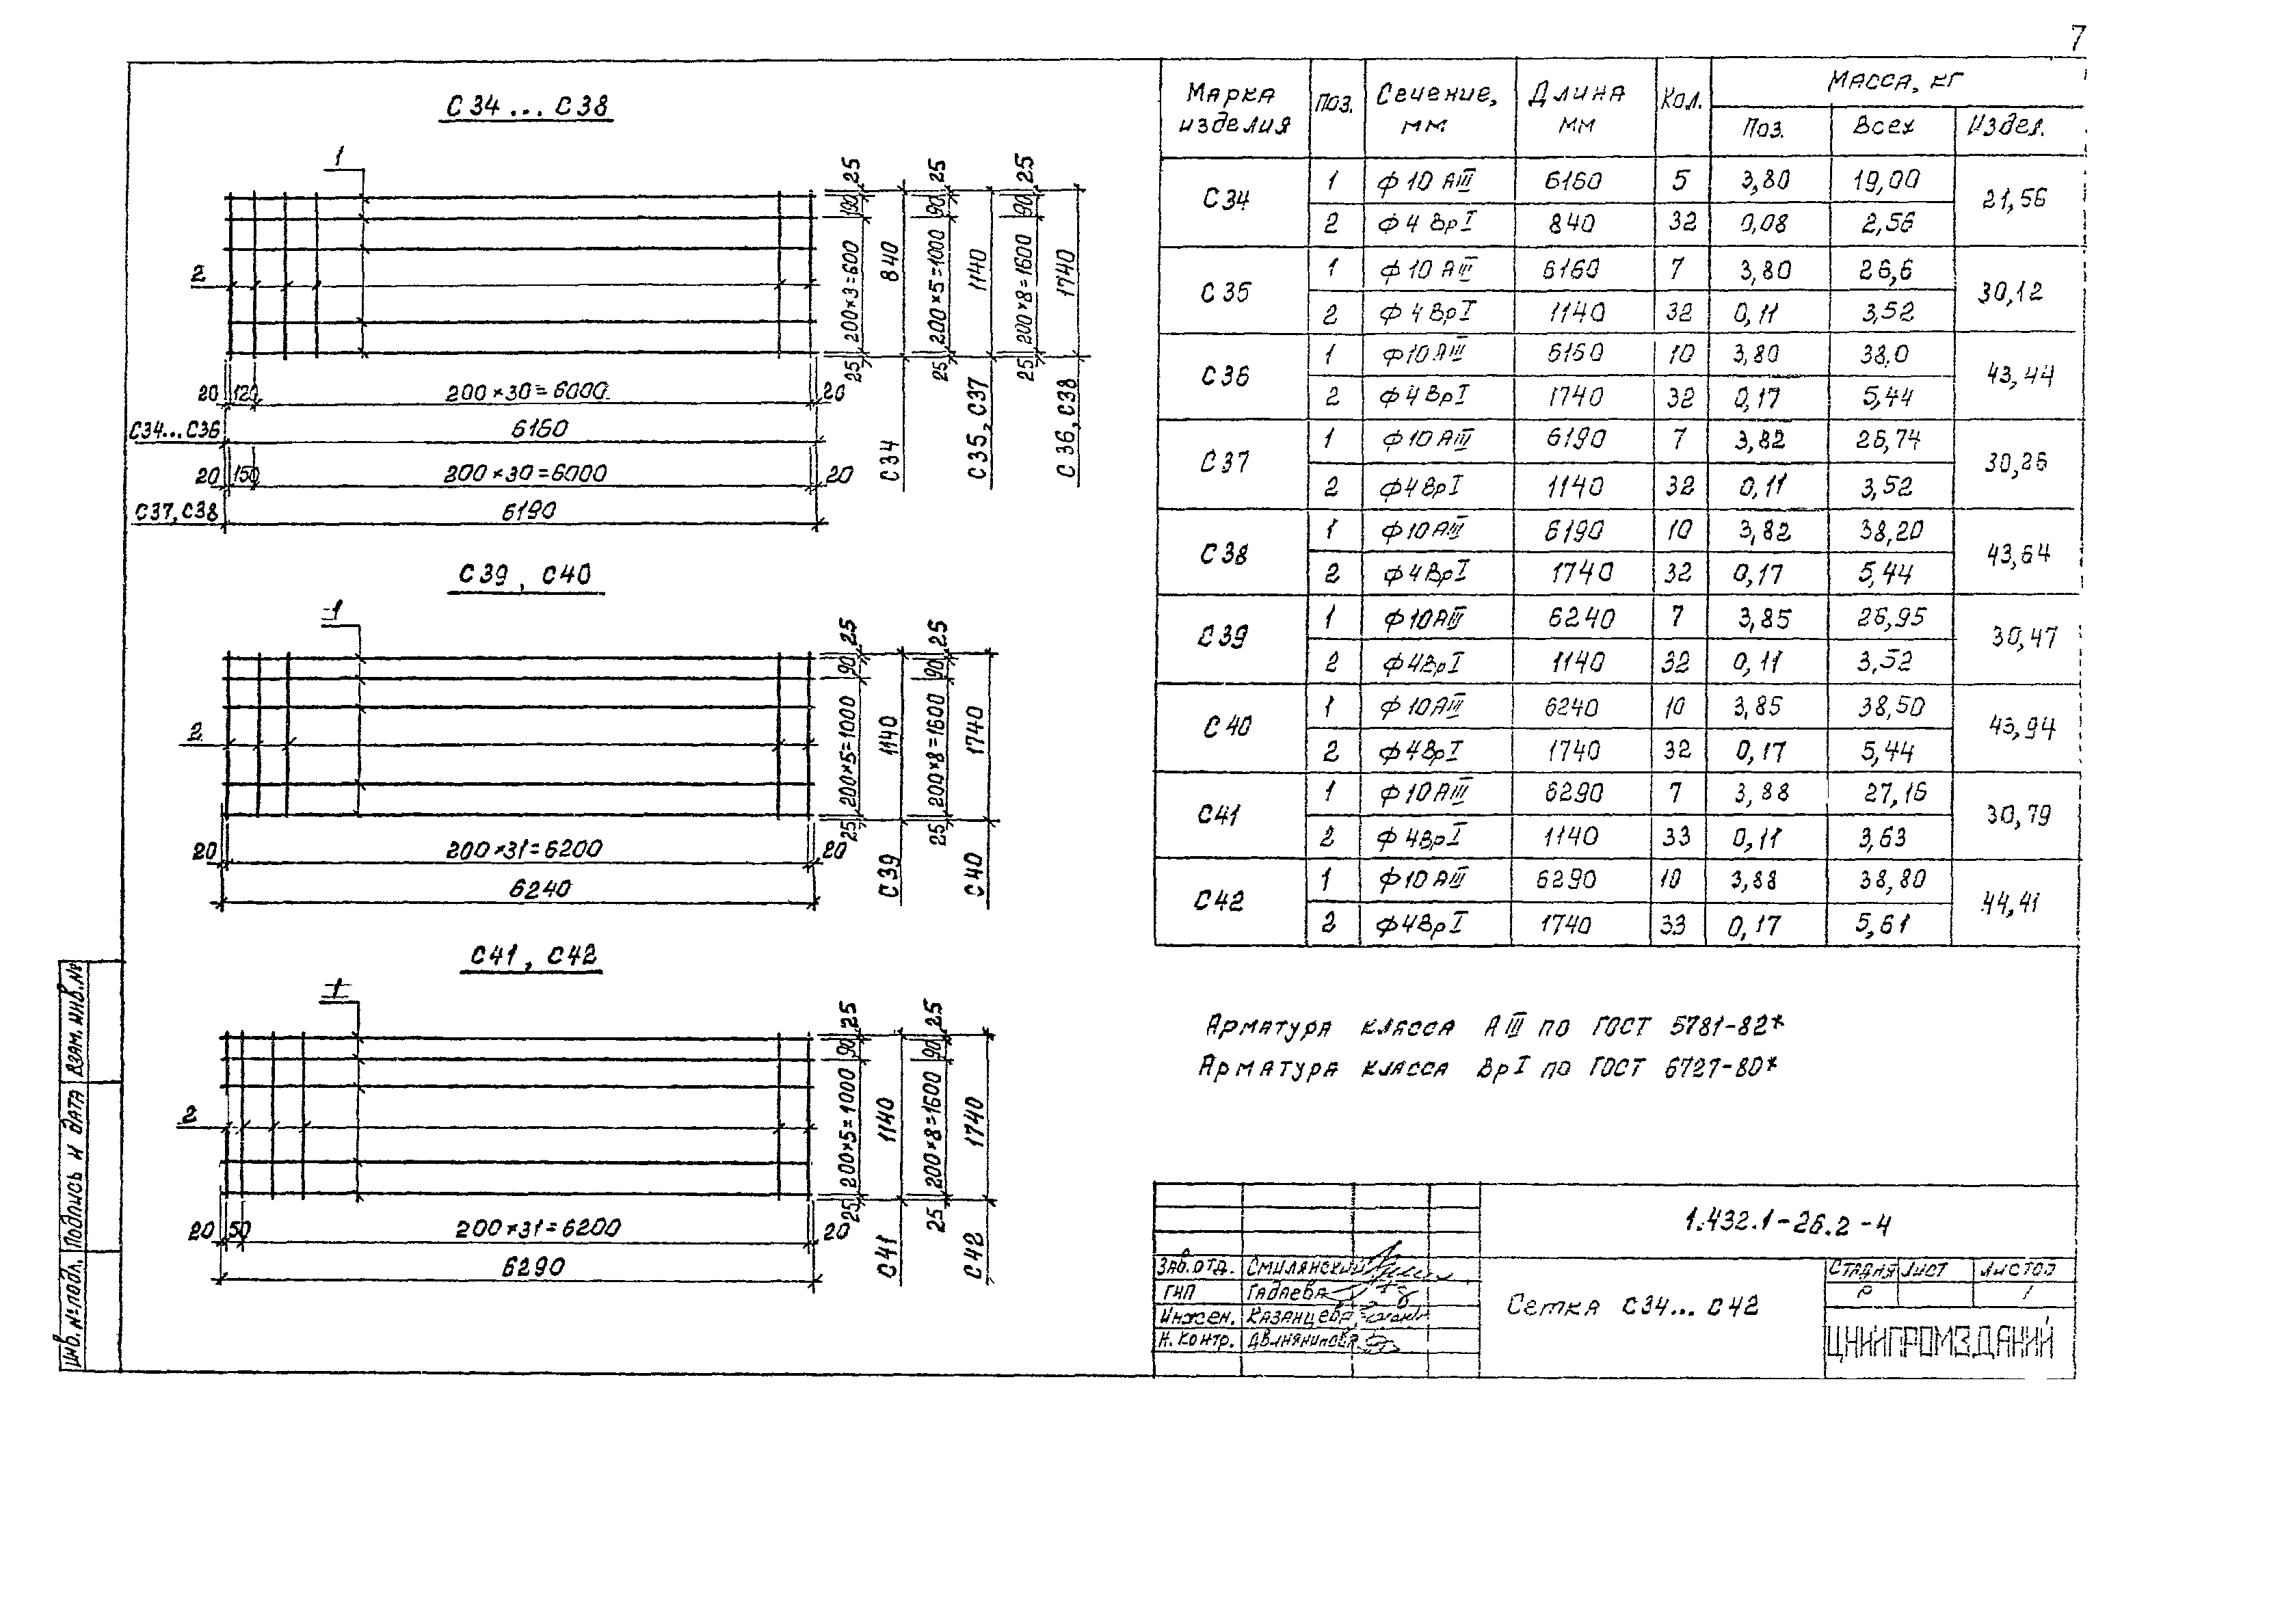 7
С34...С38
1
2
25
190
200×3=600
25
840
С34
25
90
200×5=1000
25
1140
С35, С37
25
90
200×8=1600
25
1740
С36, С38
20 120 200×30=6000 20
С34...С36 6160
20 150 200×30=6000 20
С37, С38 6190
С39, С40
1
2
25
90
200×5=1000
25
1140
С39
25
90
200×8=1600
25
1740
С40
20 200×31=6200 20
6240
С41, С42
1
2
25
90
200×5=1000
25
1140
С41
25
90
200×8=1600
25
1740
С42
20 50 200×31=6200 20
6290
Марка изделия Поз. Сечение, мм Длина мм Кол. Масса, кг
Поз. Всех Издел.
С34 1 ф10 АIII 6160 5 3,80 19,00 21,56
2 ф4 ВрI 840 32 0,08 2,56
С35 1 ф10 АIII 6160 7 3,80 26,6 30,12
2 ф4 ВрI 1140 32 0,11 3,52
С36 1 ф10 АIII 6160 10 3,80 38,0 43,44
2 ф4 ВрI 1740 32 0,17 5,44
С37 1 ф10 АIII 6190 7 3,82 26,74 30,26
2 ф4 ВрI 1140 32 0,11 3,52
С38 1 ф10 АIII 6190 10 3,82 38,20 43,64
2 ф4 ВрI 1740 32 0,17 5,44
С39 1 ф10 АIII 6240 7 3,85 26,95 30,47
2 ф4 ВрI 1140 32 0,11 3,52
С40 1 ф10 АIII 6240 10 3,85 38,50 43,94
2 ф4 ВрI 1740 32 0,17 5,44
С41 1 ф10 АIII 6290 7 3,88 27,16 30,79
2 ф4 ВрI 1140 33 0,11 3,63
С42 1 ф10 АIII 6290 10 3,88 38,80 44,41
2 ф4 ВрI 1740 33 0,17 5,61
Арматура класса АIII по ГОСТ 5781-82*
Арматура класса ВрI по ГОСТ 6727-80*
1.432.1-26.2-4
Зав.отд. Смилянский
ГИП Гадаева
Инжен. Казанцева
Н.контр.
Сетка С34...С42
Стадия Лист Листов
Р 1
ЦНИИПРОМЗДАНИЙ
Инв.№подл. Подпись и дата Взам.инв.№